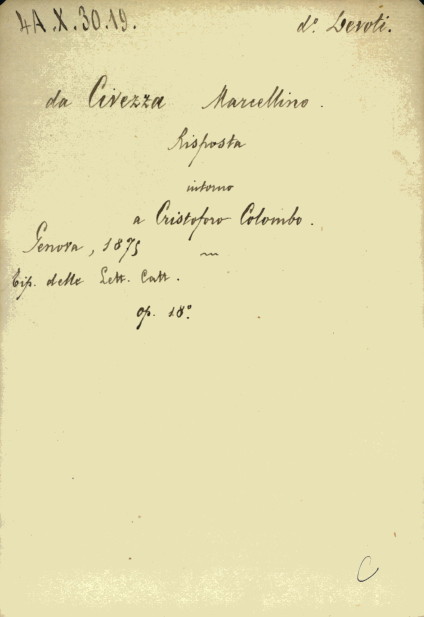 4A.X.30.19. d.º Devoti.
da Civezza Marcellino.
Risposta
intorno
a Cristoforo Colombo.
Genova, 1875
Tip. delle Lett. Catt.
op. 18º
C